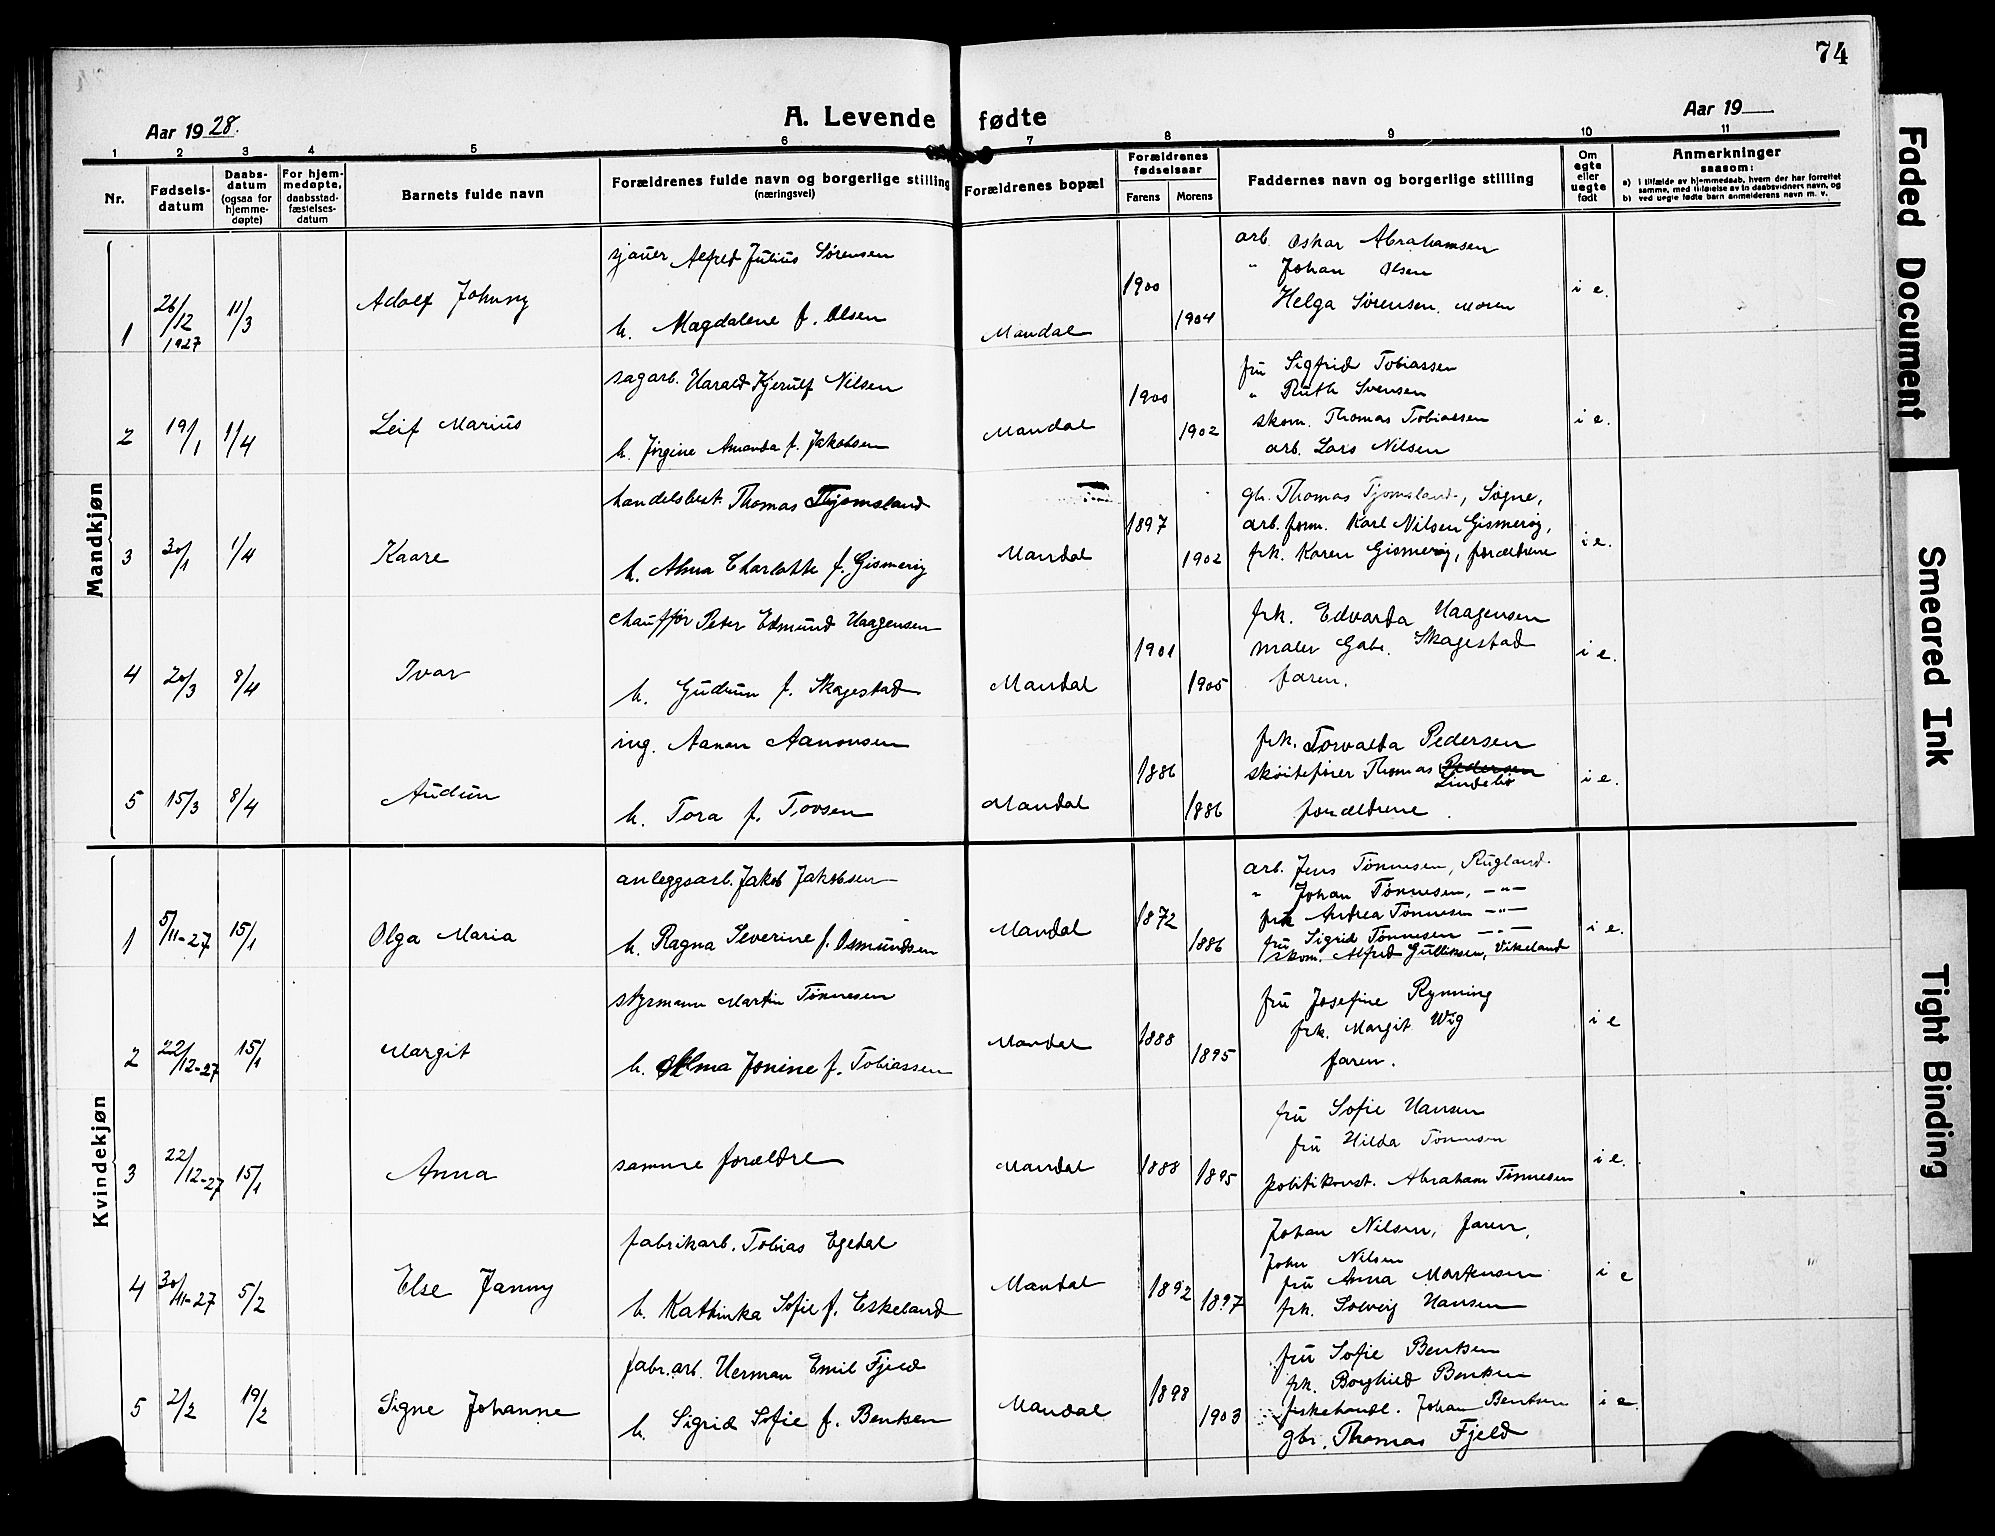 74
Aar 1928.
A. Levende fødte
Aar 19
1 2 3 4 5 6 7 8 9 10 11
Nr.
Fødsels-
datum
Daabs-
datum
(ogsaa for
hjemme-
døpte)
For hjem-
medøpte,
daabsstad-
fæstelses-
datum
Barnets fulde navn
Forældrenes fulde navn og borgerlige stilling
(næringsvei)
Forældrenes bopæl
Forældrenes
fødselsaar
Farens Morens
Faddernes navn og borgerlige stilling
Om
egte
eller
uegte
født
Anmerkninger
saasom:
a) i tilfælde av hjemmedaab, hvem der har forrettet
samme, med tilføielse av to daabsvidners navn, og
b) ved uegte fødte barn anmelderens navn m. v.
Mandkjøn
1 26/12 1927 11/3 Adolf Johnny
sjauer Alfred Julius Sørensen
h. Magdalene f. Olsen
Mandal 1900 1904
arb. Oskar Abrahamsen
" Johan Olsen
Helga Sørensen. Moren
i e.
2 19/1 1/4 Leif Marius
sagarb. Harald Kjerulf Nilsen
h. Jørgine Amanda f. Jakobsen
Mandal 1900 1902
fru Sigfrid Tobiassen
" Ruth Svensen
skom. Thomas Tobiassen
arb. Lars Nilsen
i e.
3 30/1 1/4 Kaare
handelsbest. Thomas Tjomsland
h. Alma Charlotte f. Gismerøy
Mandal 1897 1902
gbr. Thomas Tjomsland, Søgne,
arb. form. Karl Nilsen Gismerøy,
frk. Karen Gismerøy, forældrene
i e.
4 20/3 8/4 Ivar
chauffør Peter Edmund Haagensen
h. Gudrun f. Skagestad
Mandal 1901 1905
frk. Edvarda Haagensen
maler Gabr. Skagestad
faren.
i e.
5 15/3 8/4 Audun
ing. Aanon Aanonsen
h. Tora f. Tovsen
Mandal 1886 1886
frk. Torvalda Pedersen
skøitefører Thomas Pedersen
Lindebø
forældrene.
i e.
Kvindekjøn
1 5/11-27 15/1 Olga Maria
anleggsarb. Jakob Jakobsen
h. Ragna Severine f. Osmundsen
Mandal 1872 1886
arb. Jens Tønnesen, Rugland.
" Johan Tønnesen, —"—
frk Andrea Tønnesen —"—
fru Sigrid Tønnesen —"—
skom. Alfred Gulliksen, Vikeland
i e.
2 22/12-27 15/1 Margit
styrmann Martin Tønnesen
h. Alma Jonine f. Tobiassen
Mandal 1888 1895
fru Josefine Rynning
frk. Margit Wig
faren.
i e
3 22/12-27 15/1 Anna
samme forældre
Mandal 1888 1895
fru Sofie Hansen
fru Hilda Tønnesen
politikonst. Abraham Tønnesen
i e.
4 30/11-27 5/2 Else Janny
fabrikarb. Tobias Egedal
h. Kathinka Sofie f. Eskeland
Mandal 1892 1897
Johan Nilsen, faren,
John Nilsen
fru Anna Martensen
frk. Solveig Hansen
i e
5 2/2 19/2 Signe Johanne
fabr.arb. Herman Emil Fjeld
h. Sigrid Sofie f. Bentsen
Mandal 1898 1903
fru Sofie Bentsen
frk. Borghild Bentsen
fiskehandl. Johan Bentsen
gbr. Thomas Fjeld
i e.
Faded Document
Smeared Ink
Tight Binding